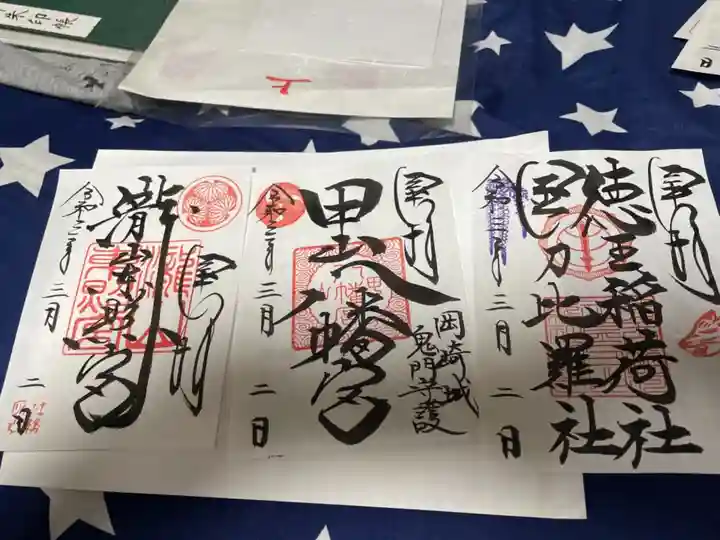 朱印帳
上
奉拝
徳王稲荷社
金刀比羅社
令和三年三月二日
奉拝
甲山八幡宮
岡崎城
鬼門守護
令和三年三月二日
奉拝
瀧山東照宮
令和三年三月二日